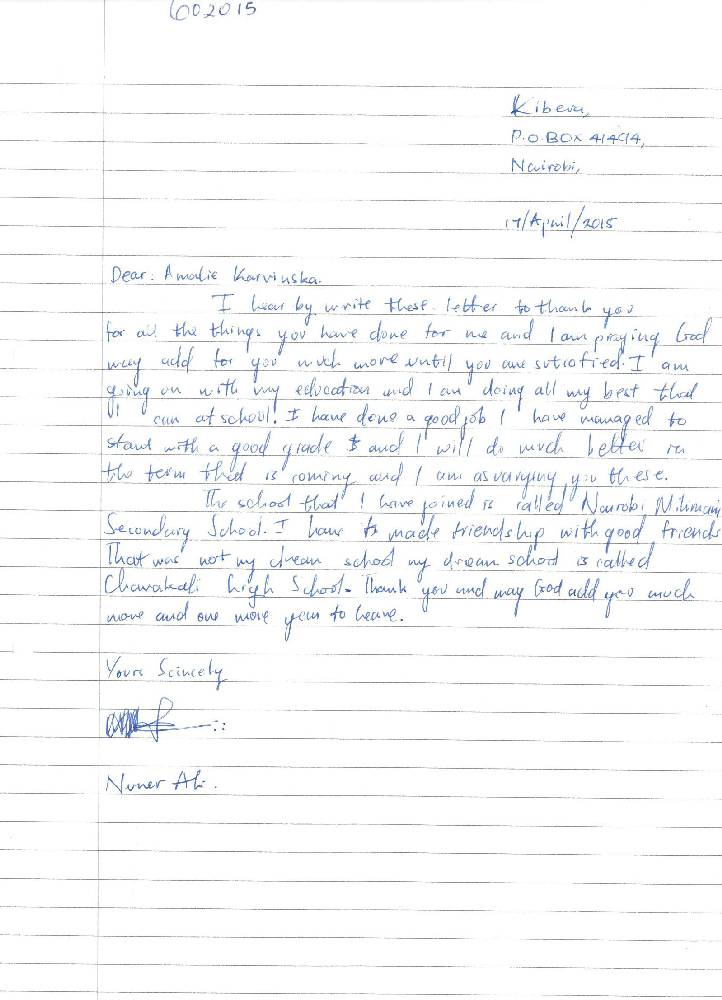 602015
Kibera,
P.O.BOX 41414,
Nairobi,
17/April/2015
Dear: Amalie Karvinska.
I hear by write these letter to thank you
for all the things you have done for me and I am praying God
may add for you much more until you are sutisfied. I am
going on with my education and I am doing all my best that
I can at school. I have done a good job I have managed to
start with a good grade and I will do much better in
the term that is coming and I am asvarying you these.
The school that I have joined is called Nairobi Milimani
Secondary School. I have to made friendship with good friends
That was not my dream school my dream school is called
Chavakali high School. Thank you and may God add you much
more and one more year to leave.
Yours Scincely
Ali.